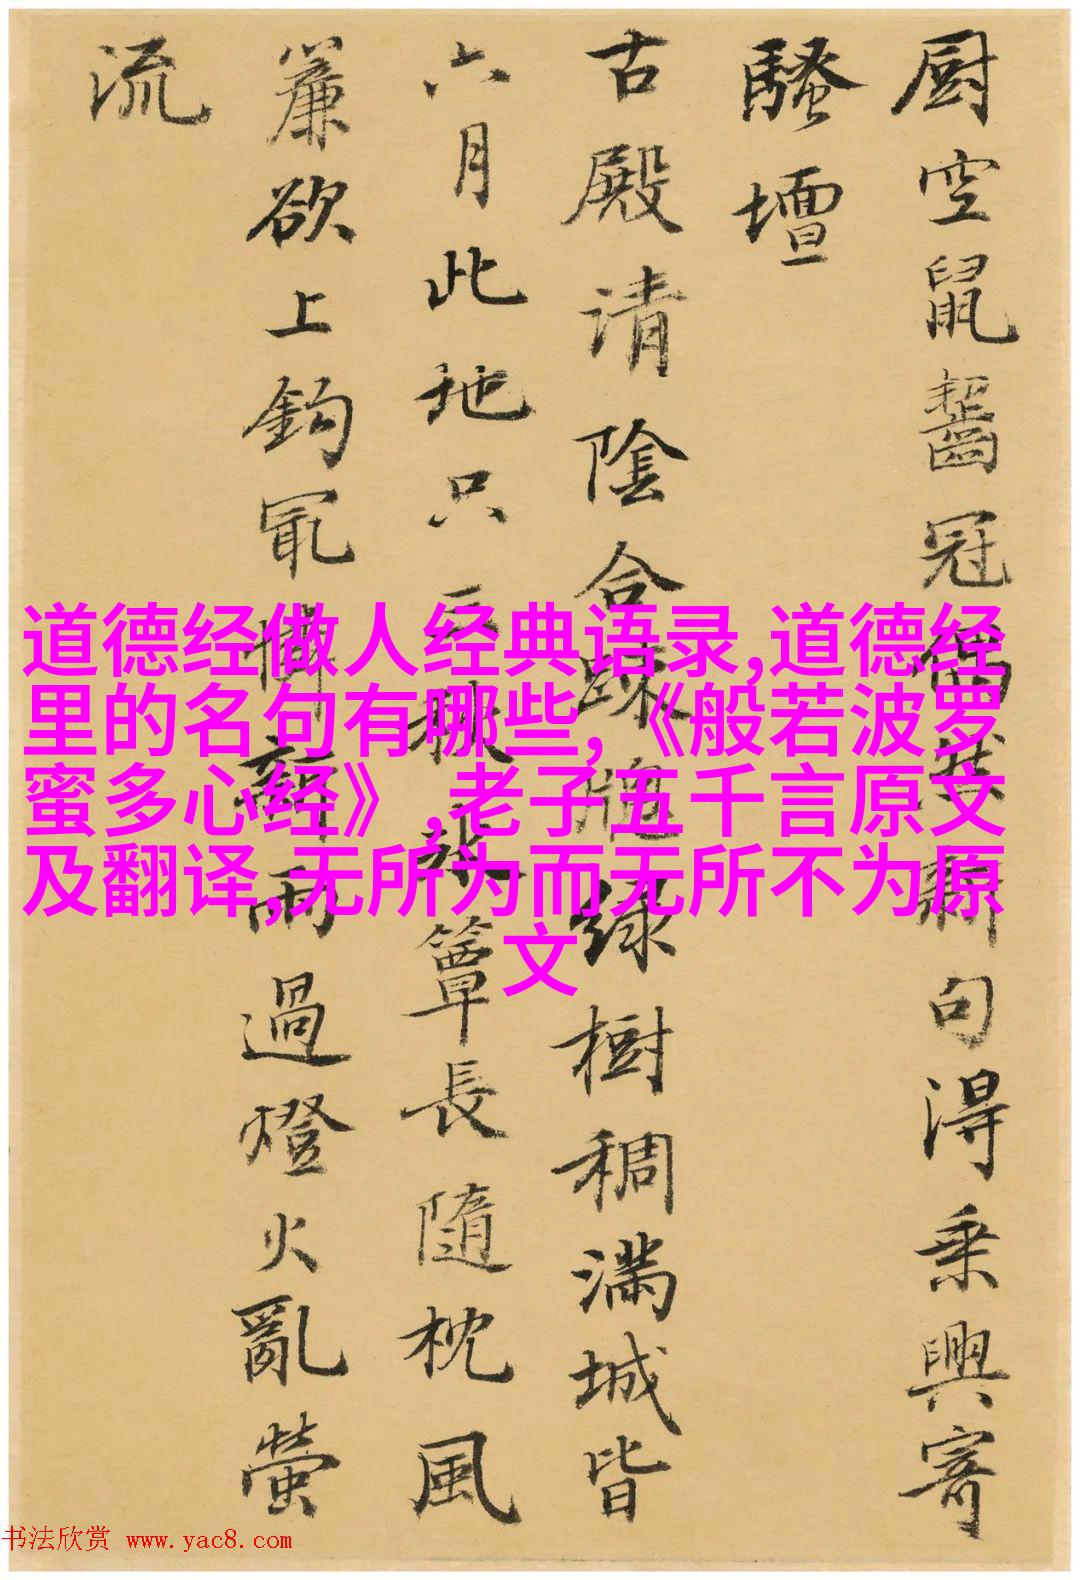 厨空鼠齧冠 句得乗興寄
騷壇
古殿清陰合 緑樹稠满城皆
六月此地只 簟長隨枕風
簾欲上鈎 雨過燈火亂螢
流
道德经做人经典语录,道德经
里的名句有哪些,《般若波罗
蜜多心经》,老子五千言原文
及翻译,无所为而无所不为原
文
书法欣赏 www.yac8.com